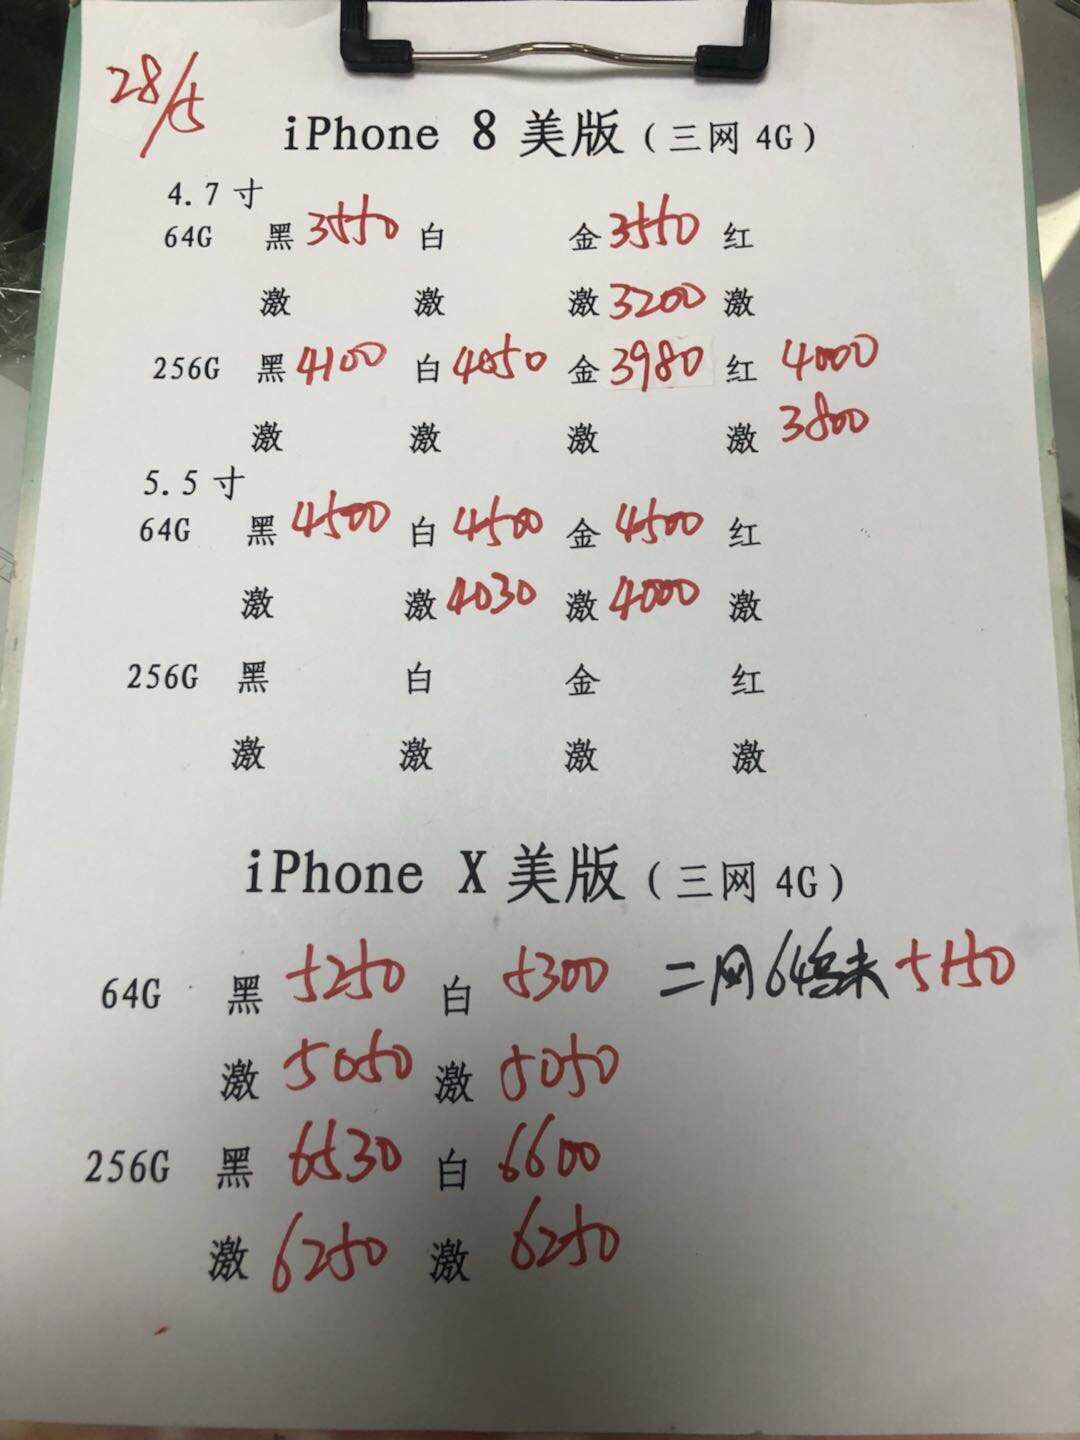 28/5
iPhone 8 美版（三网 4G）
4.7 寸
64G 黑 3550 白 金 3550 红
激 激 激 3200 激
256G 黑 4100 白 4050 金 3980 红 4000
激 激 激 激 3800
5.5 寸
64G 黑 4500 白 4500 金 4500 红
激 激 4030 激 4000 激
256G 黑 白 金 红
激 激 激 激
iPhone X 美版（三网 4G）
64G 黑 5250 白 5300 二网 64 未 5150
激 5050 激 5050
256G 黑 6530 白 6600
激 6250 激 6250